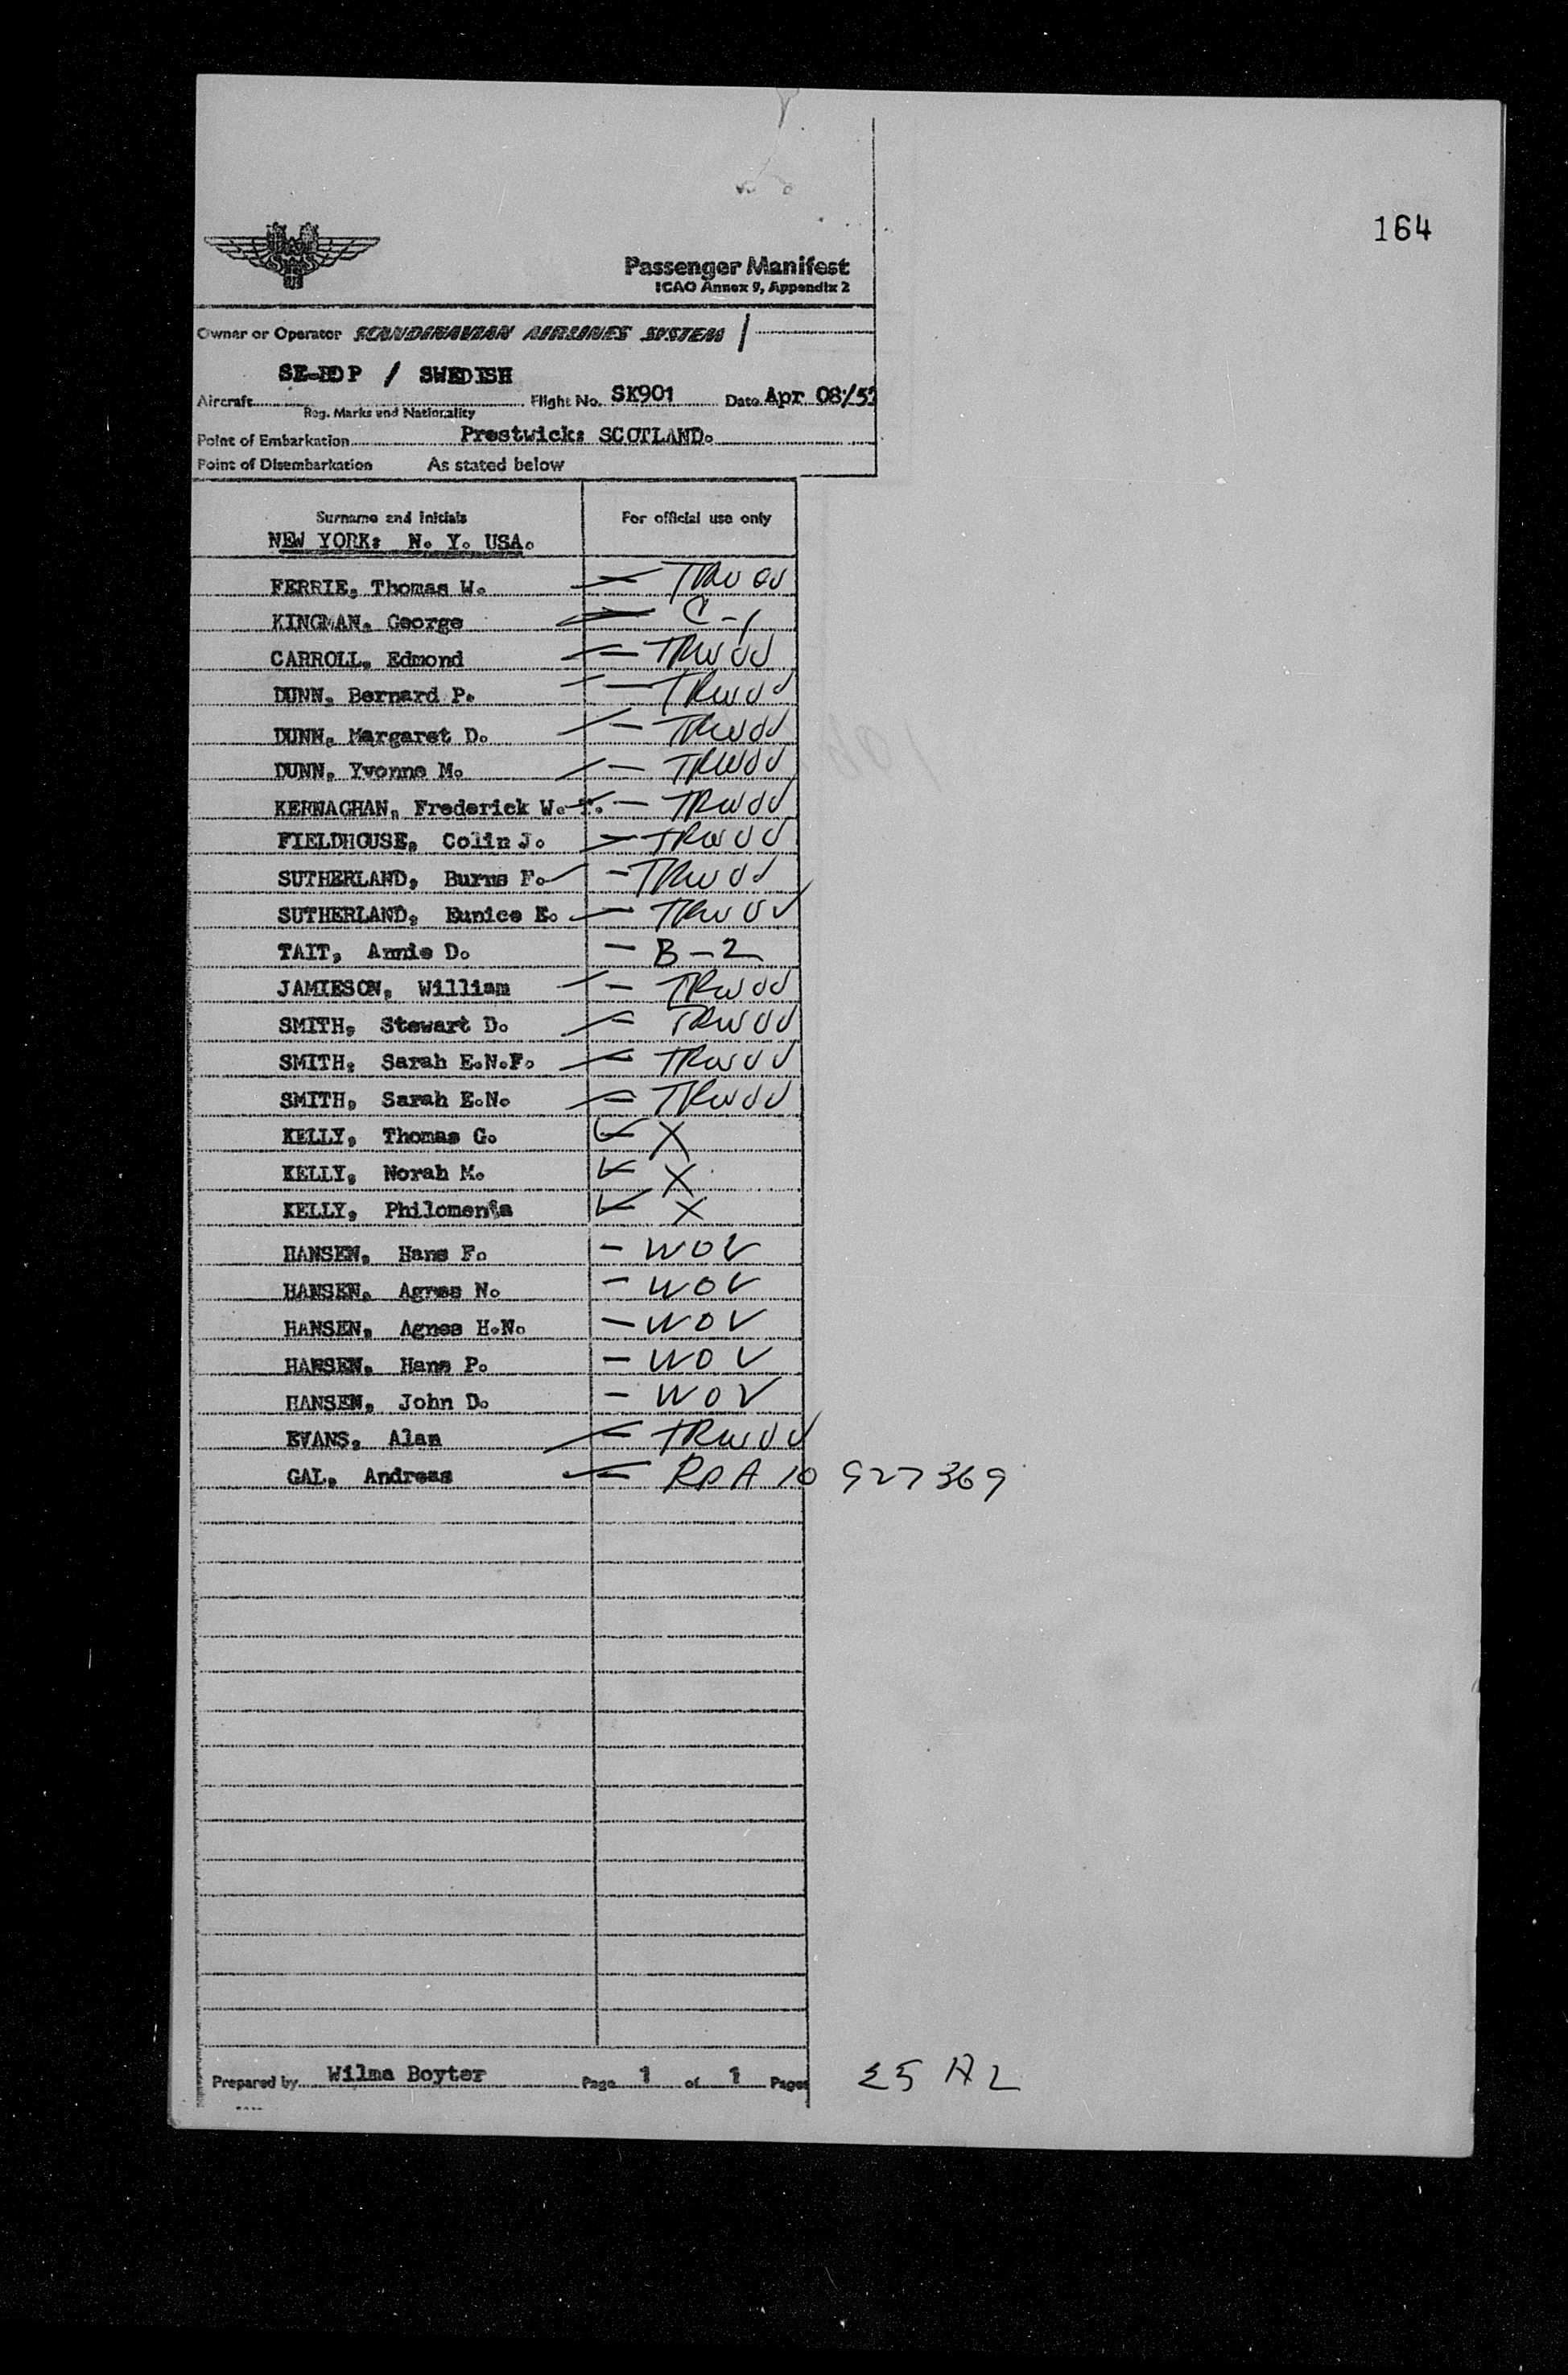 164
Passenger Manifest
ICAO Annex 9, Appendix 2
Owner or Operator SCANDINAVIAN AIRLINES SYSTEM
SE-BDP / SWEDISH
Aircraft Flight No. SK901 Date Apr 08/57
Reg. Marks and Nationality
Point of Embarkation Prestwick: SCOTLAND.
Point of Disembarkation As stated below
Surname and initials For official use only
NEW YORK: N. Y. USA.
FERRIE, Thomas W. — TRWOV
KINGMAN, George — C-1
CARROLL, Edmond — TRWOV
DUNN, Bernard P. — TRWOV
DUNN, Margaret D. — TRWOV
DUNN, Yvonne M. — TRWOV
KERNAGHAN, Frederick W. T. — TRWOV
FIELDHOUSE, Colin J. — TRWOV
SUTHERLAND, Burns F. — TRWOV
SUTHERLAND, Eunice E. — TRWOV
TAIT, Annie D. — B-2
JAMIESON, William — TRWOV
SMITH, Stewart D. — TRWOV
SMITH, Sarah E.N.F. — TRWOV
SMITH, Sarah E.N. — TRWOV
KELLY, Thomas G. X
KELLY, Norah M. X
KELLY, Philomena X
HANSEN, Hans F. — WOV
HANSEN, Agnes N. — WOV
HANSEN, Agnes H.N. — WOV
HANSEN, Hans P. — WOV
HANSEN, John D. — WOV
EVANS, Alan — TRWOV
GAL, Andreas — RPA 10 927369
Prepared by Wilma Boyter Page 1 of 1 Pages
25 AL